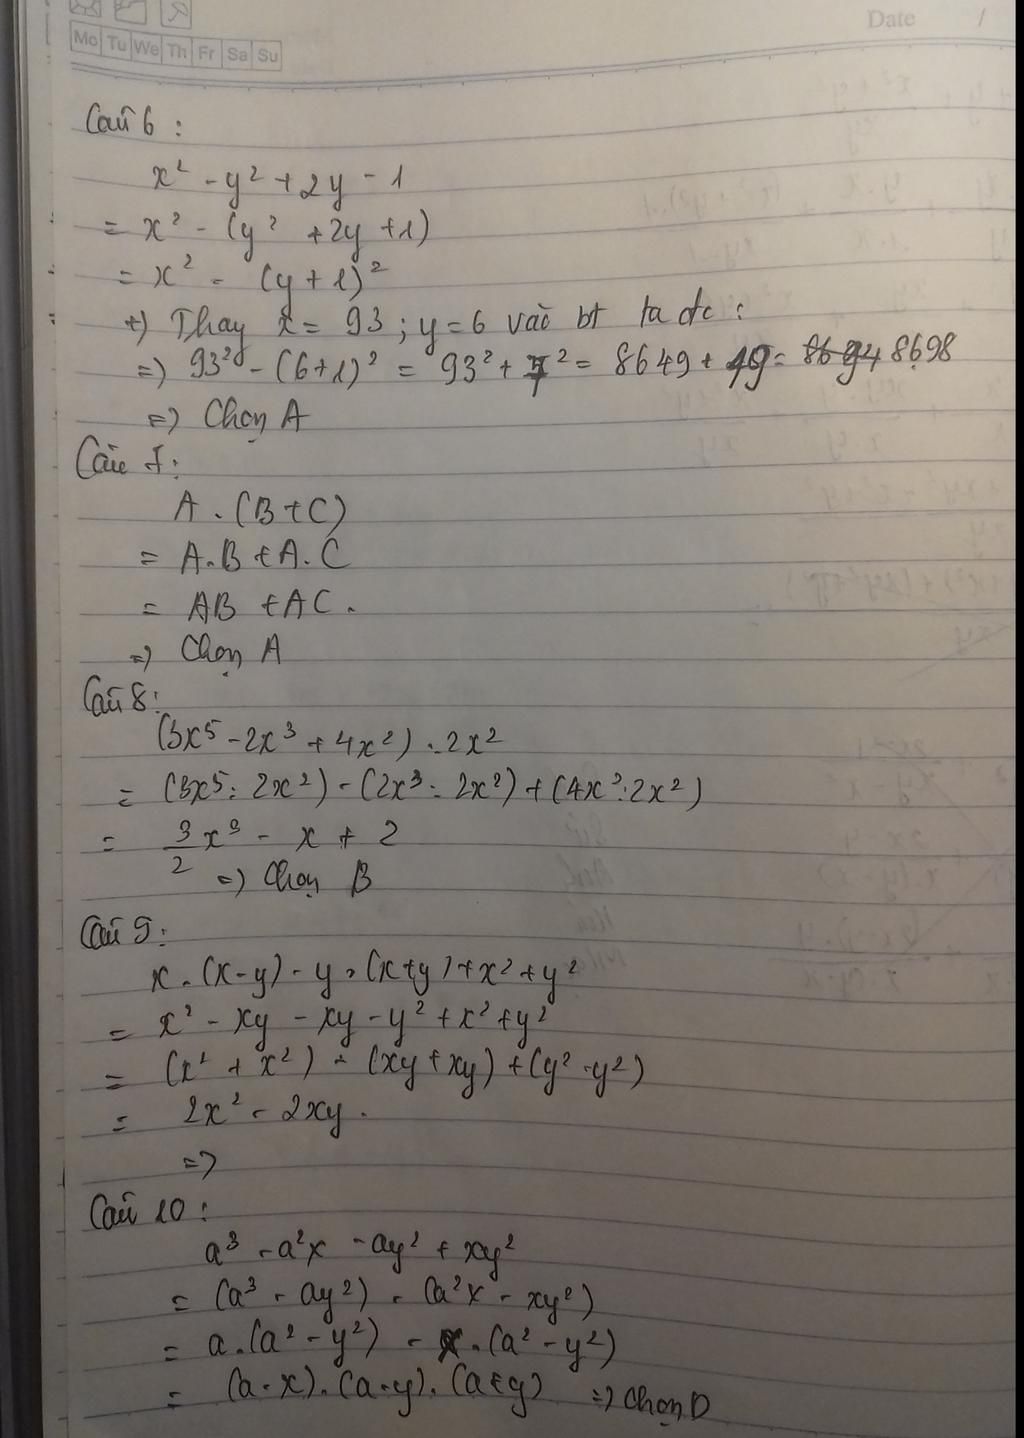 Date /
Mo Tu We Th Fr Sa Su
Câu 6 :
x² - y² + 2y - 1
= x² - (y² + 2y + 1)
= x² - (y + 1)²
+) Thay x = 93 ; y = 6 vào bt ta đc :
=) 93² - (6+1)² = 93² + 7² = 8649 + 49 = 8698
=) Chọn A
Câu 7 :
A . (B + C)
= A.B + A.C
= AB + AC .
=) Chọn A
Câu 8 :
(3x⁵ - 2x³ + 4x²) : 2x²
= (3x⁵ : 2x²) - (2x³ : 2x²) + (4x² : 2x²)
= 3/2 x³ - x + 2
=) Chọn B
Câu 9 :
x . (x - y) - y . (x + y) + x² + y²
= x² - xy - xy - y² + x² + y²
= (x² + x²) - (xy + xy) + (y² - y²)
= 2x² - 2xy .
=)
Câu 10 :
a³ - a²x - ay² + xy²
= (a³ - ay²) - (a²x - xy²)
= a . (a² - y²) - x . (a² - y²)
= (a - x) . (a - y) . (a + y) =) Chọn D